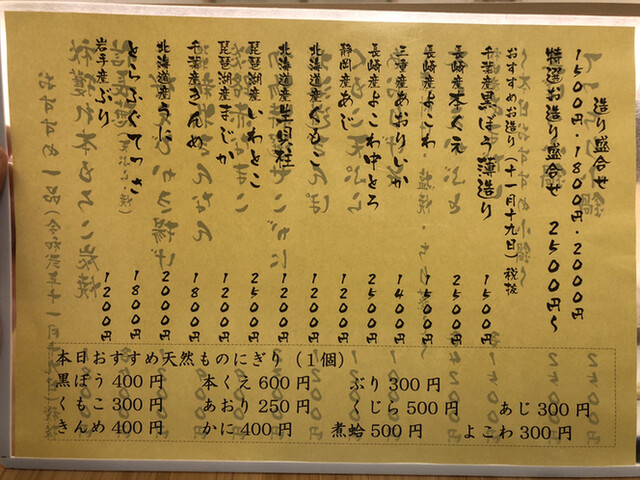 造り盛合せ
1500円・1800円・2000円
特選お造り盛合せ 2500円〜
おすすめお造り(十一月十九日)税抜
千葉産黒ぼう薄造り 1500円
長崎産本くえ 2500円
長崎産よこわ 1500円
三重産あおりいか 1400円
長崎産よこわ中とろ 2000円
静岡産あじ 1200円
北海道産くもこ 1200円
北海道産生貝柱 1200円
琵琶湖産いわとこ 2500円
琵琶湖産まじか 1200円
千葉産きんめ 1800円
北海道産うに 2000円
とらふぐてっさ 1800円
岩手産ぶり 1200円
本日おすすめ天然ものにぎり(1個)
黒ぼう 400円 本くえ 600円 ぶり 300円
くもこ 300円 あおり 250円 くじら 500円 あじ 300円
きんめ 400円 かに 400円 煮蛤 500円 よこわ 300円